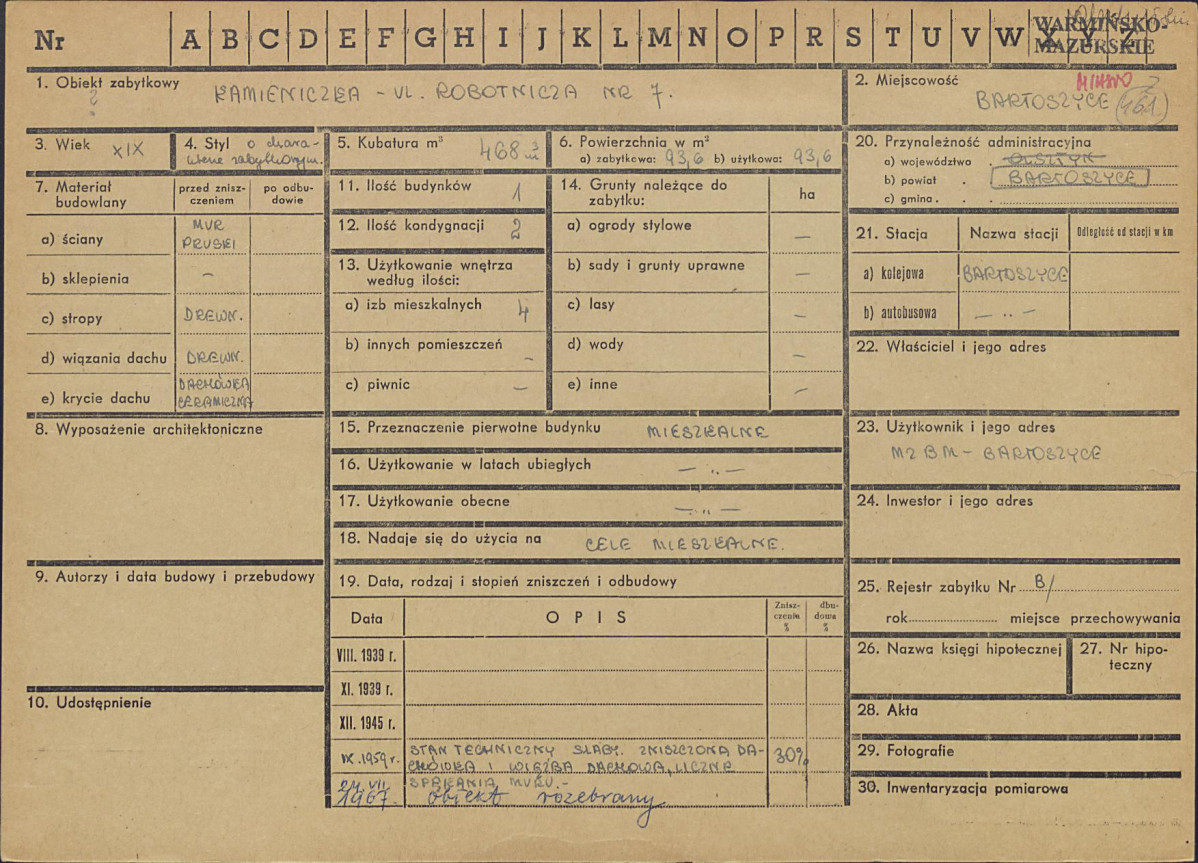 Nr A B C D E F G H I J K L M N O P R S T U V W X Y Z
WARMIŃSKO-
MAZURSKIE
1. Obiekt zabytkowy
?
KAMIENICZKA – UL. ROBOTNICZA NR 7.
2. Miejscowość
MIASTO
BARTOSZYCE (161)
3. Wiek XIX
4. Styl o chara-
kterze zabytkowym.
5. Kubatura m³ 468 m³
6. Powierzchnia w m²
a) zabytkowa: 93,6 b) użytkowa: 93,6
7. Materiał
budowlany
przed znisz-
czeniem
po odbu-
dowie
a) ściany MUR
PRUSKI
b) sklepienia –
c) stropy DREWN.
d) wiązania dachu DREWN.
e) krycie dachu DACHÓWKA
CERAMICZNA
8. Wyposażenie architektoniczne
9. Autorzy i data budowy i przebudowy
10. Udostępnienie
11. Ilość budynków 1
12. Ilość kondygnacji 2
13. Użytkowanie wnętrza
według ilości:
a) izb mieszkalnych 4
b) innych pomieszczeń –
c) piwnic –
14. Grunty należące do
zabytku: ha
a) ogrody stylowe –
b) sady i grunty uprawne –
c) lasy –
d) wody –
e) inne –
15. Przeznaczenie pierwotne budynku MIESZKALNE
16. Użytkowanie w latach ubiegłych – „ –
17. Użytkowanie obecne – „ –
18. Nadaje się do użycia na CELE MIESZKALNE.
19. Data, rodzaj i stopień zniszczeń i odbudowy
Data OPIS
Znisz-
czenia
%
dbu-
dowa
%
VIII. 1939 r.
XI. 1939 r.
XII. 1945 r.
IX. 1959 r. STAN TECHNICZNY SŁABY. ZNISZCZONA DA-
CHÓWKA I WIĘŹBA DACHOWA, LICZNE
SPĘKANIA MURU.– 30%
VII.
1967. obiekt rozebrany
20. Przynależność administracyjna
a) województwo . OLSZTYN
b) powiat . BARTOSZYCE
c) gmina . . .
21. Stacja Nazwa stacji Odległość od stacji w km
a) kolejowa BARTOSZYCE
b) autobusowa – „ –
22. Właściciel i jego adres
23. Użytkownik i jego adres
MZBM – BARTOSZYCE
24. Inwestor i jego adres
25. Rejestr zabytku Nr B/
rok miejsce przechowywania
26. Nazwa księgi hipotecznej
27. Nr hipo-
teczny
28. Akta
29. Fotografie
30. Inwentaryzacja pomiarowa